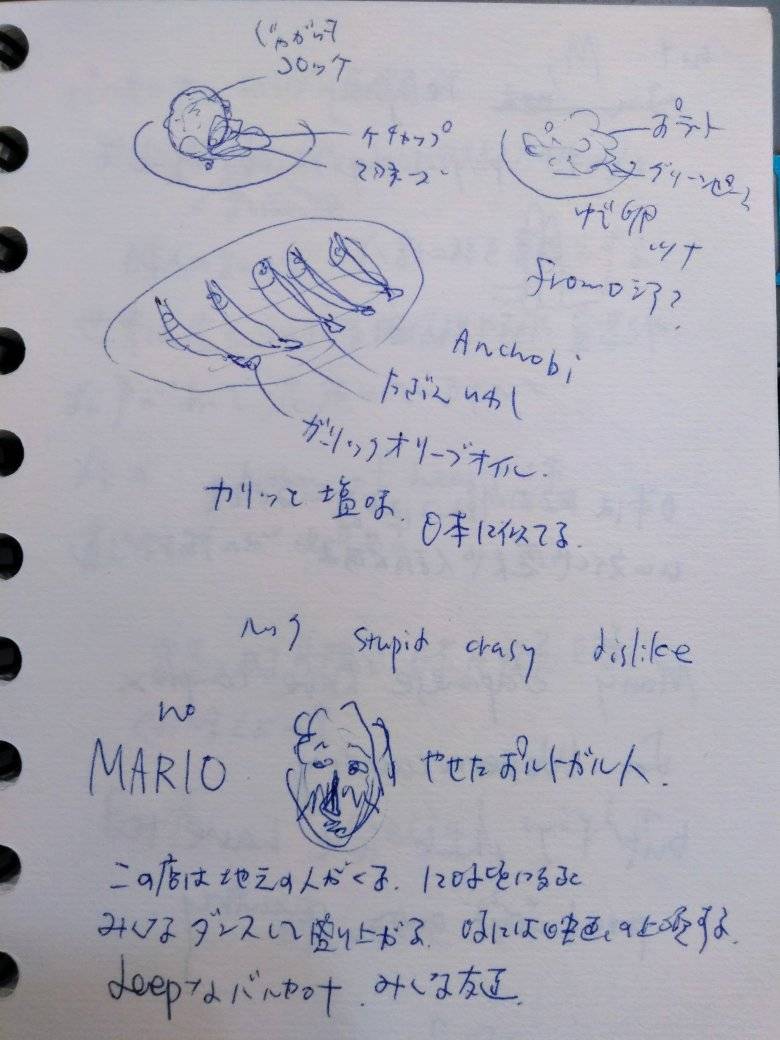 じゃがいも
コロッケ
ケチャップ
マヨネーズ
ポテト
グリーンピース
ゆで卵
ツナ
from ロシア?
Anchobi
たぶんいわし
ガーリックオリーブオイル.
カリッと塩味.
日本に似てる.
stupid crasy dislike
no
MARIO
やせたポルトガル人.
この店は地元の人がくる. 12時頃になると
みんなダンスして盛り上がる. 時には映画の上映する.
deepなバルカロナ. みんな友達.